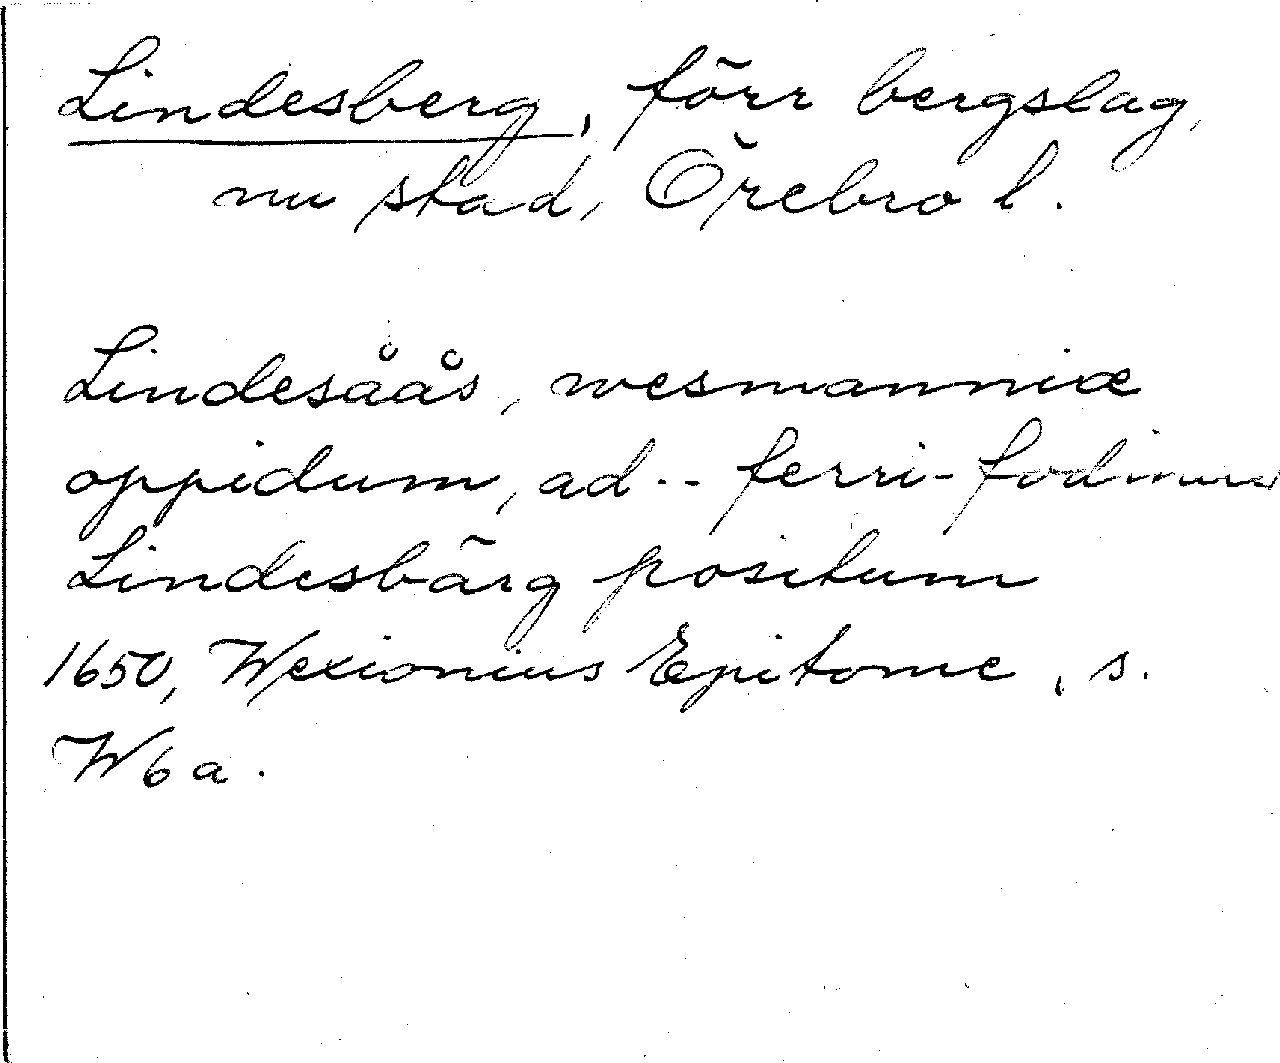 Lindesberg, förr bergslag,
nu stad, Örebro l.
Lindesåås, wesmanniæ
oppidum, ad -- ferri-fodinas
Lindesbärg positum
1650, Wexionius Epitome, s.
W6a.